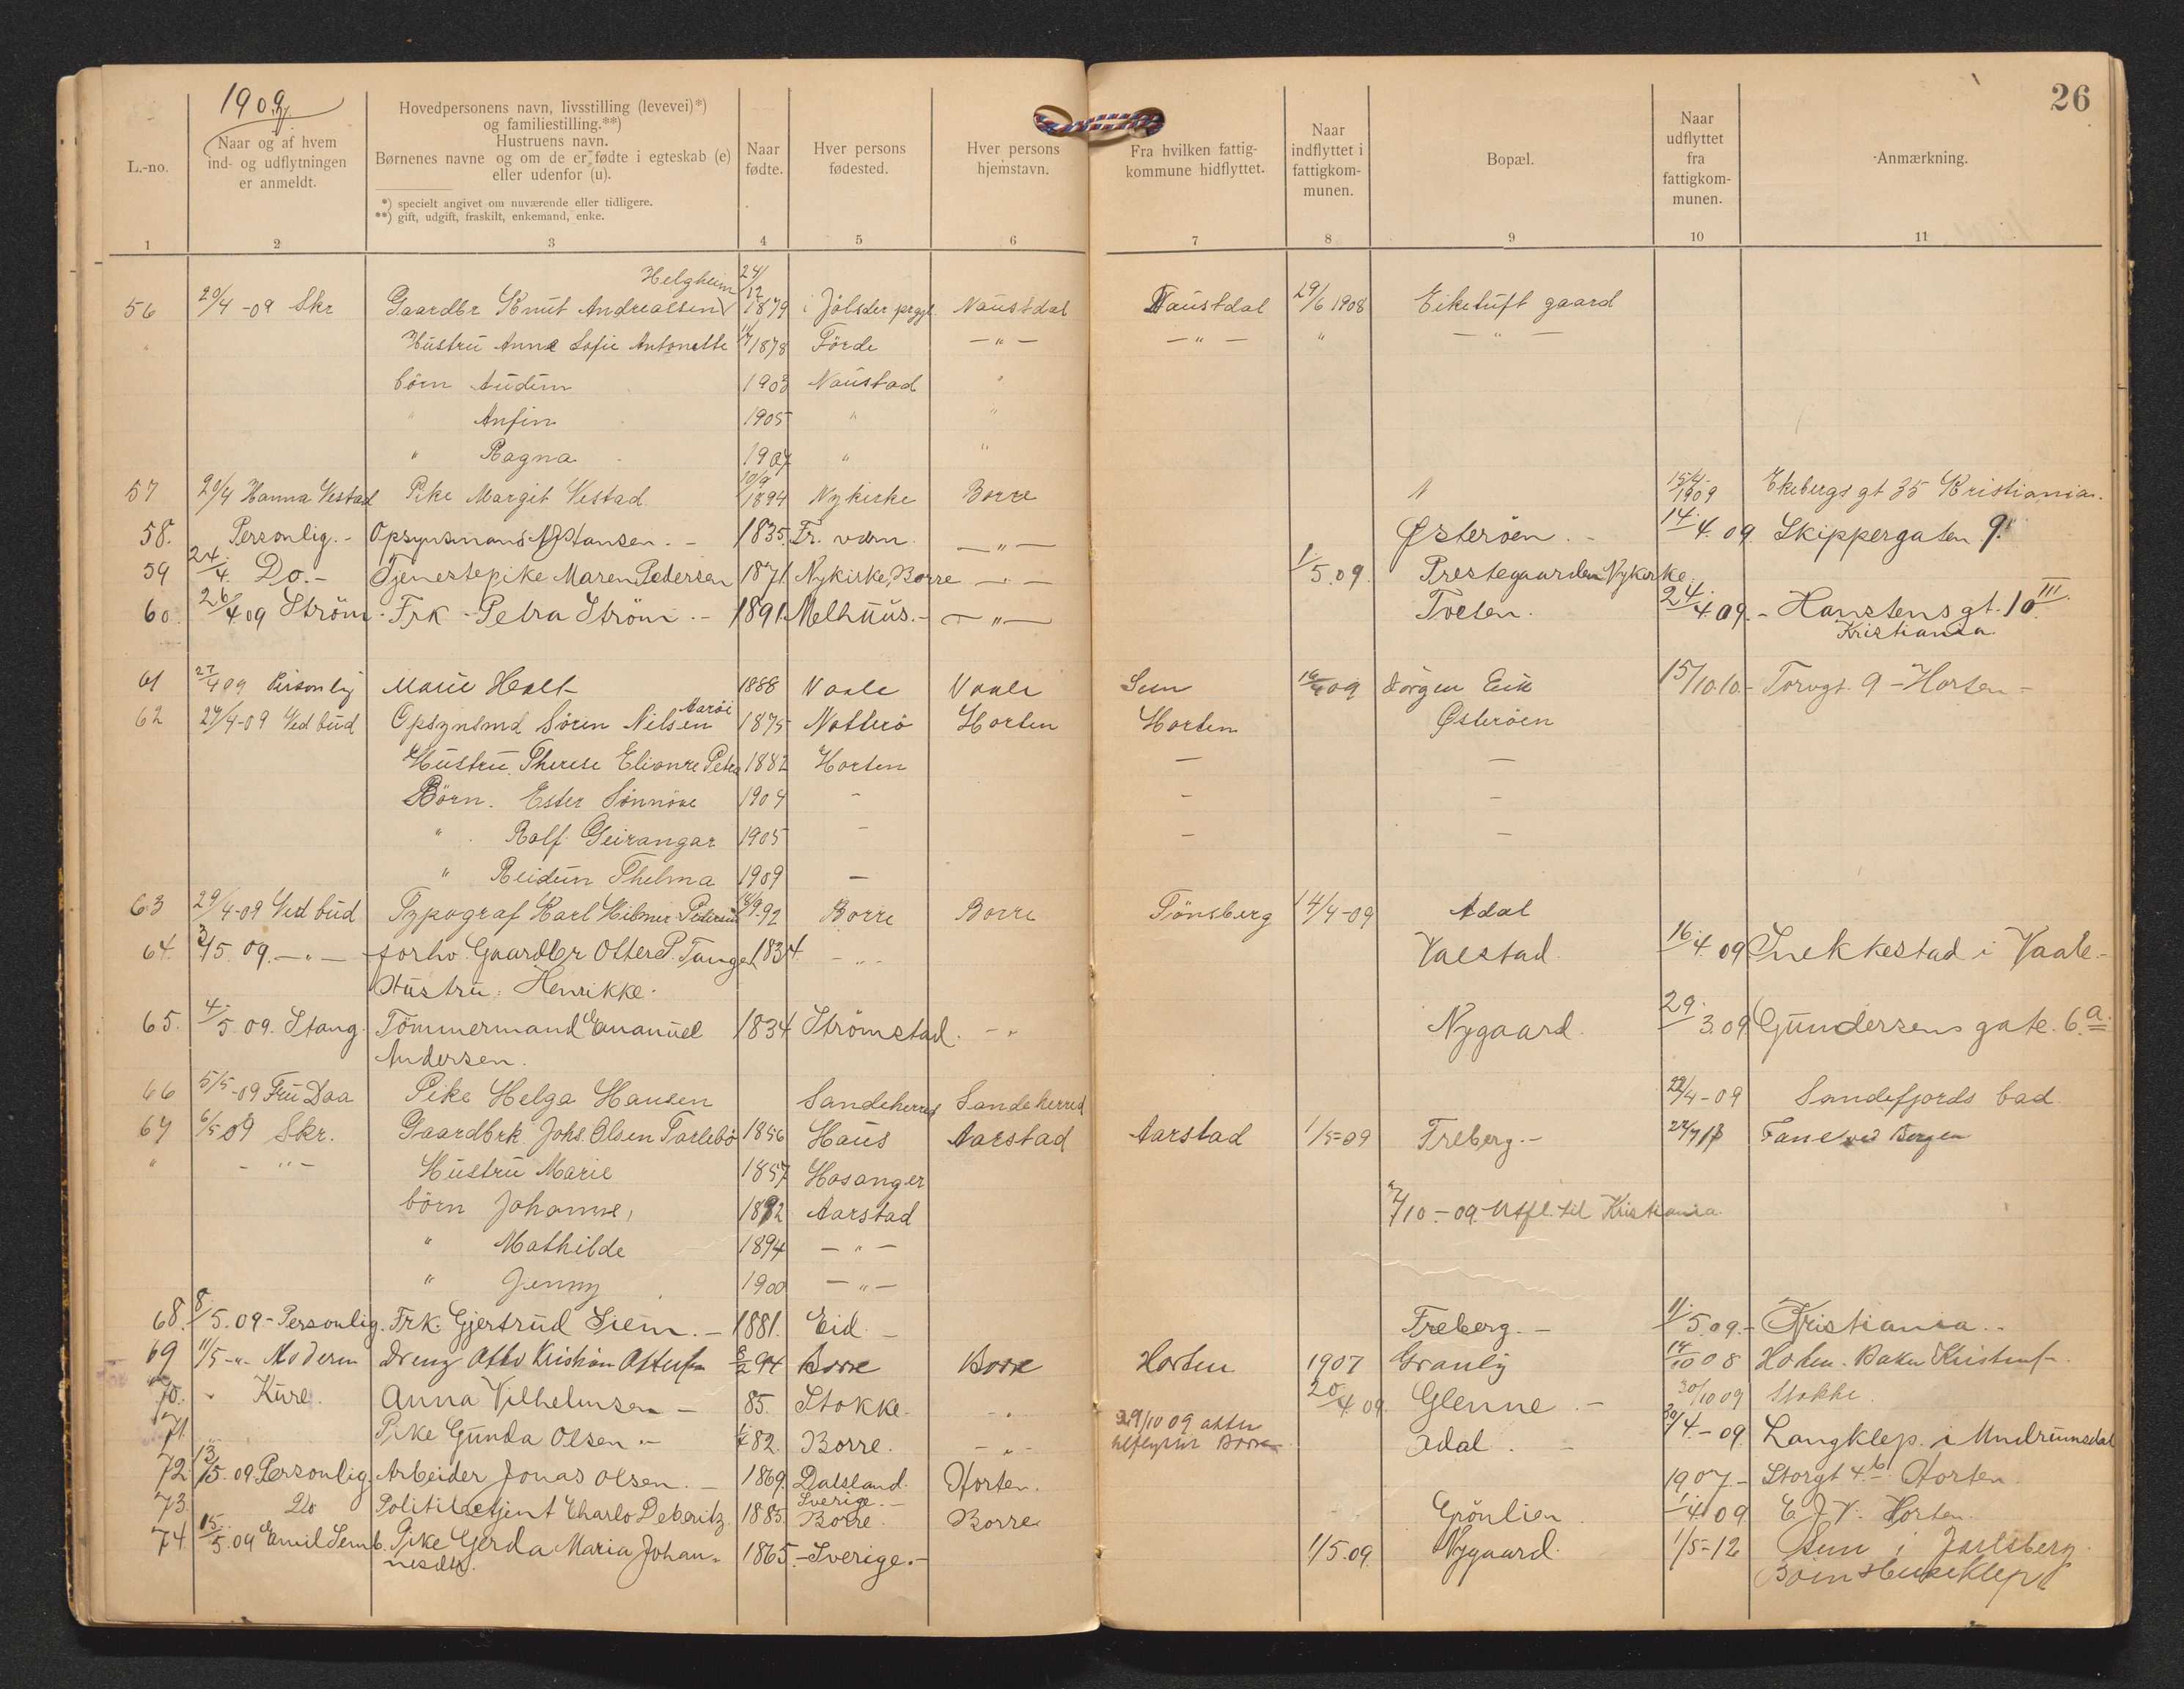 1909
26
L.-no.
Naar og af hvem
ind- og udflytningen
er anmeldt.
Hovedpersonens navn, livsstilling (levevei)*)
og familiestilling.**)
Hustruens navn.
Børnenes navne og om de er fødte i egteskab (e)
eller udenfor (u).
*) specielt angivet om nuværende eller tidligere.
**) gift, udgift, fraskilt, enkemand, enke.
Naar
fødte.
Hver persons
fødested.
Hver persons
hjemstavn.
Fra hvilken fattig-
kommune hidflyttet.
Naar
indflyttet i
fattigkom-
munen.
Bopæl.
Naar
udflyttet
fra
fattigkom-
munen.
Anmærkning.
1 2 3 4 5 6 7 8 9 10 11
Helgheim 24/
56 20/4 -09 Skr Gaardbr Knut Andreassen 12 1879 i Jölster prgj. Naustdal Naustdal 29/6 1908 Eiketuft gaard
Hustru Anna Sofie Antonette 1878 Förde — " — — " — " — " —
börn Audun 1903 Naustad "
" Anfin 1905 " "
" Ragna 1907 " "
57 20/4 Hanna Vestad Pike Margit Vestad 10/9 1894 Nykirke Borre 15/4 1909 Ekebergs gt 35 Kristiania.
58. Personlig.- Opsynsmand Hansen. - 1835. Fr. værn. — " — Østeröen. - 14/4. 09. Skippergaten 9.
59 24/4. Do. - Tjenestepike Maren Pedersen 1871. Nykirke, Borre — " — 1/5.09. Prestegaarden Nykirke
60. 26/4 09 Ström - Frk - Petra Ström. - 1891. Melhuus. - — " — Tveten. 24/4.09. - Hanstens gt. 10 III.
Kristiania.
61 27/4 09 Personlig Marie Healt 1888 Vaale Vaale Sem 16/4 09 Jörgen Eik 15/10.10 - Torvgt. 9 - Horten -
Aaröi
62 27/4-09 Ved bud Opsynsmd Sören Nilsen 1875 Notterö Horten Horten Østeröen
Hustru Therese Elionre Petra 1882 Horten — —
Börn. Ester Sönnöve 1904 - - -
" Rolf Geirangar 1905 - - -
" Reidun Thelma 1909 —
63 29/4-09 Ved bud Typograf Karl Hilmer Pedersen 92 Borre Borre Tönsberg 14/4-09 Adal
64. 3/5. 09. — " — forhv. Gaardbr Otter P. Tange 1834. - " - Valstad. 16./4. 09 Snekkestad i Vaale. -
Hustru: Henrikke.
65. 4/5. 09. Stang. Tömmermand Emanuel 1834 Strömstad. - " Nygaard. 29./3.09 Gundersens gate. 6.a
Andersen.
66 5/5-09 Fru Daa Pike Helga Hansen Sandeherred Sandeherred 22/4-09 Sandefjords bad.
67 6/5 09 Skr. Gaardbrk. Johs. Olsen Tarlebö 1856 Haus Aarstad Aarstad 1/5-09 Freberg. - Fane ved Bergen
" - " - Hustru Marie 1857 Hosanger
börn Johanne, 1892 Aarstad /10.-09. Utfl. til Kristiania.
" Mathilde 1894 — " —
" Jenny 1900 — " —
68. 8/5.09 - Personlig. Frk. Gjertrud Siem. - 1881. Eid. - Freberg. - 11/5.09. - Kristiania. -
69 11/5 - " - Moderen dreng Otto Kristian 8/2 94 Borre Borre Horten 1907 Granly 14/10 08 Horten.
70. " Kure. Anna Vilhelmsen - 85. Stokke. - " 20/4.09. Glenne. - 30/10 09 Stokke
71. Pike Gunda Olsen - 82. Borre. - " - 29/10 09 atter
tilflyttet Borre Adal. - 30/4.-09. Langklep. i Undrumsdal
72. 13/5. 09 Personlig. Arbeider Jonas Olsen. - 1869. Dalsland. Horten. 1907. - Storgt 4.b Horten.
Sverige. -
73. Do Politibetjent Charlo Deberitz. 1885. Borre. Borre Grönlien. 1/4.09 E. J. V. Horten.
74. 15/5.09 Emil Semb. Pike Gerda Maria Johan- 1865. - Sverige. - 1/5.09. Nygaard. 1/5-12 Sem i Jarlsberg.
nesdtr.